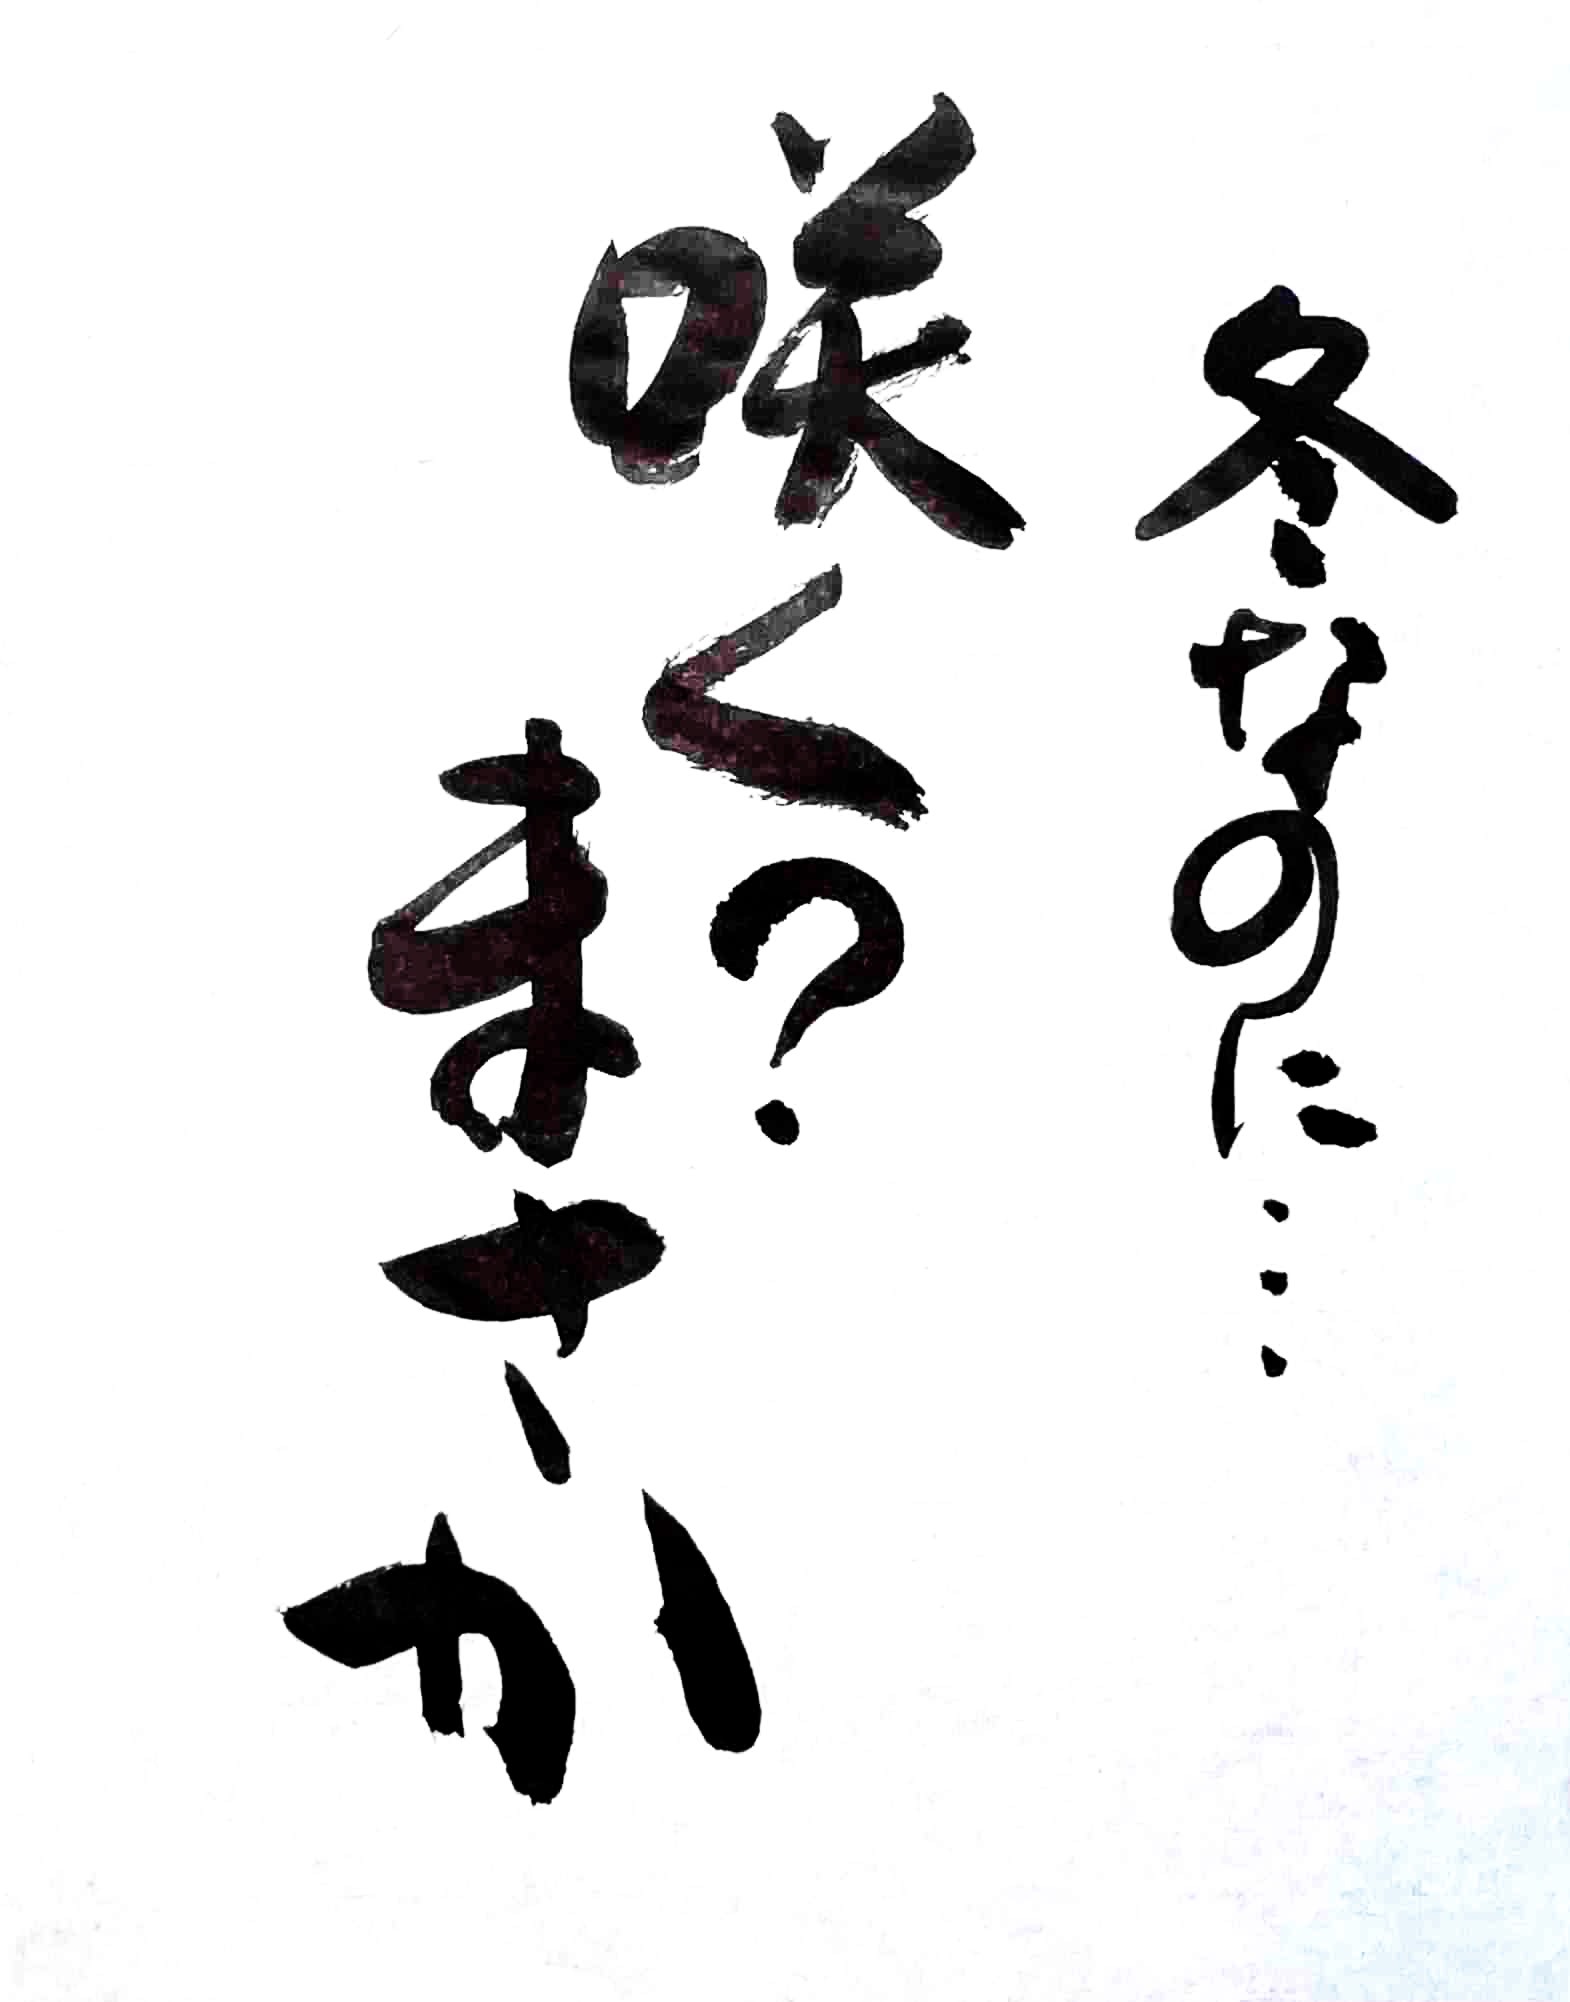 冬なのに…
咲く?
まさか